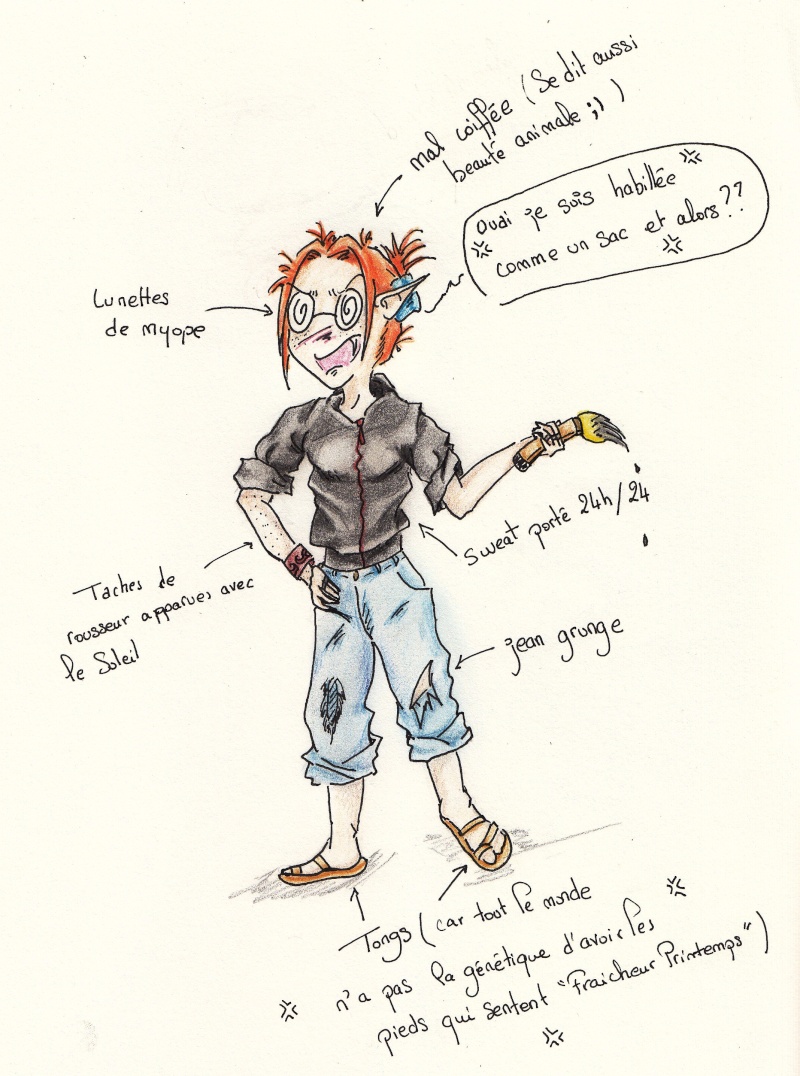 mal coiffée (Se dit aussi
beauté animale ;) )
Ouai je suis habillée
comme un sac et alors??
Lunettes
de myope
Sweat porté 24h/24
Taches de
rousseur apparues avec
le Soleil
jean grunge
Tongs (car tout le monde
n'a pas la génétique d'avoir les
pieds qui sentent "Fraicheur Printemps")